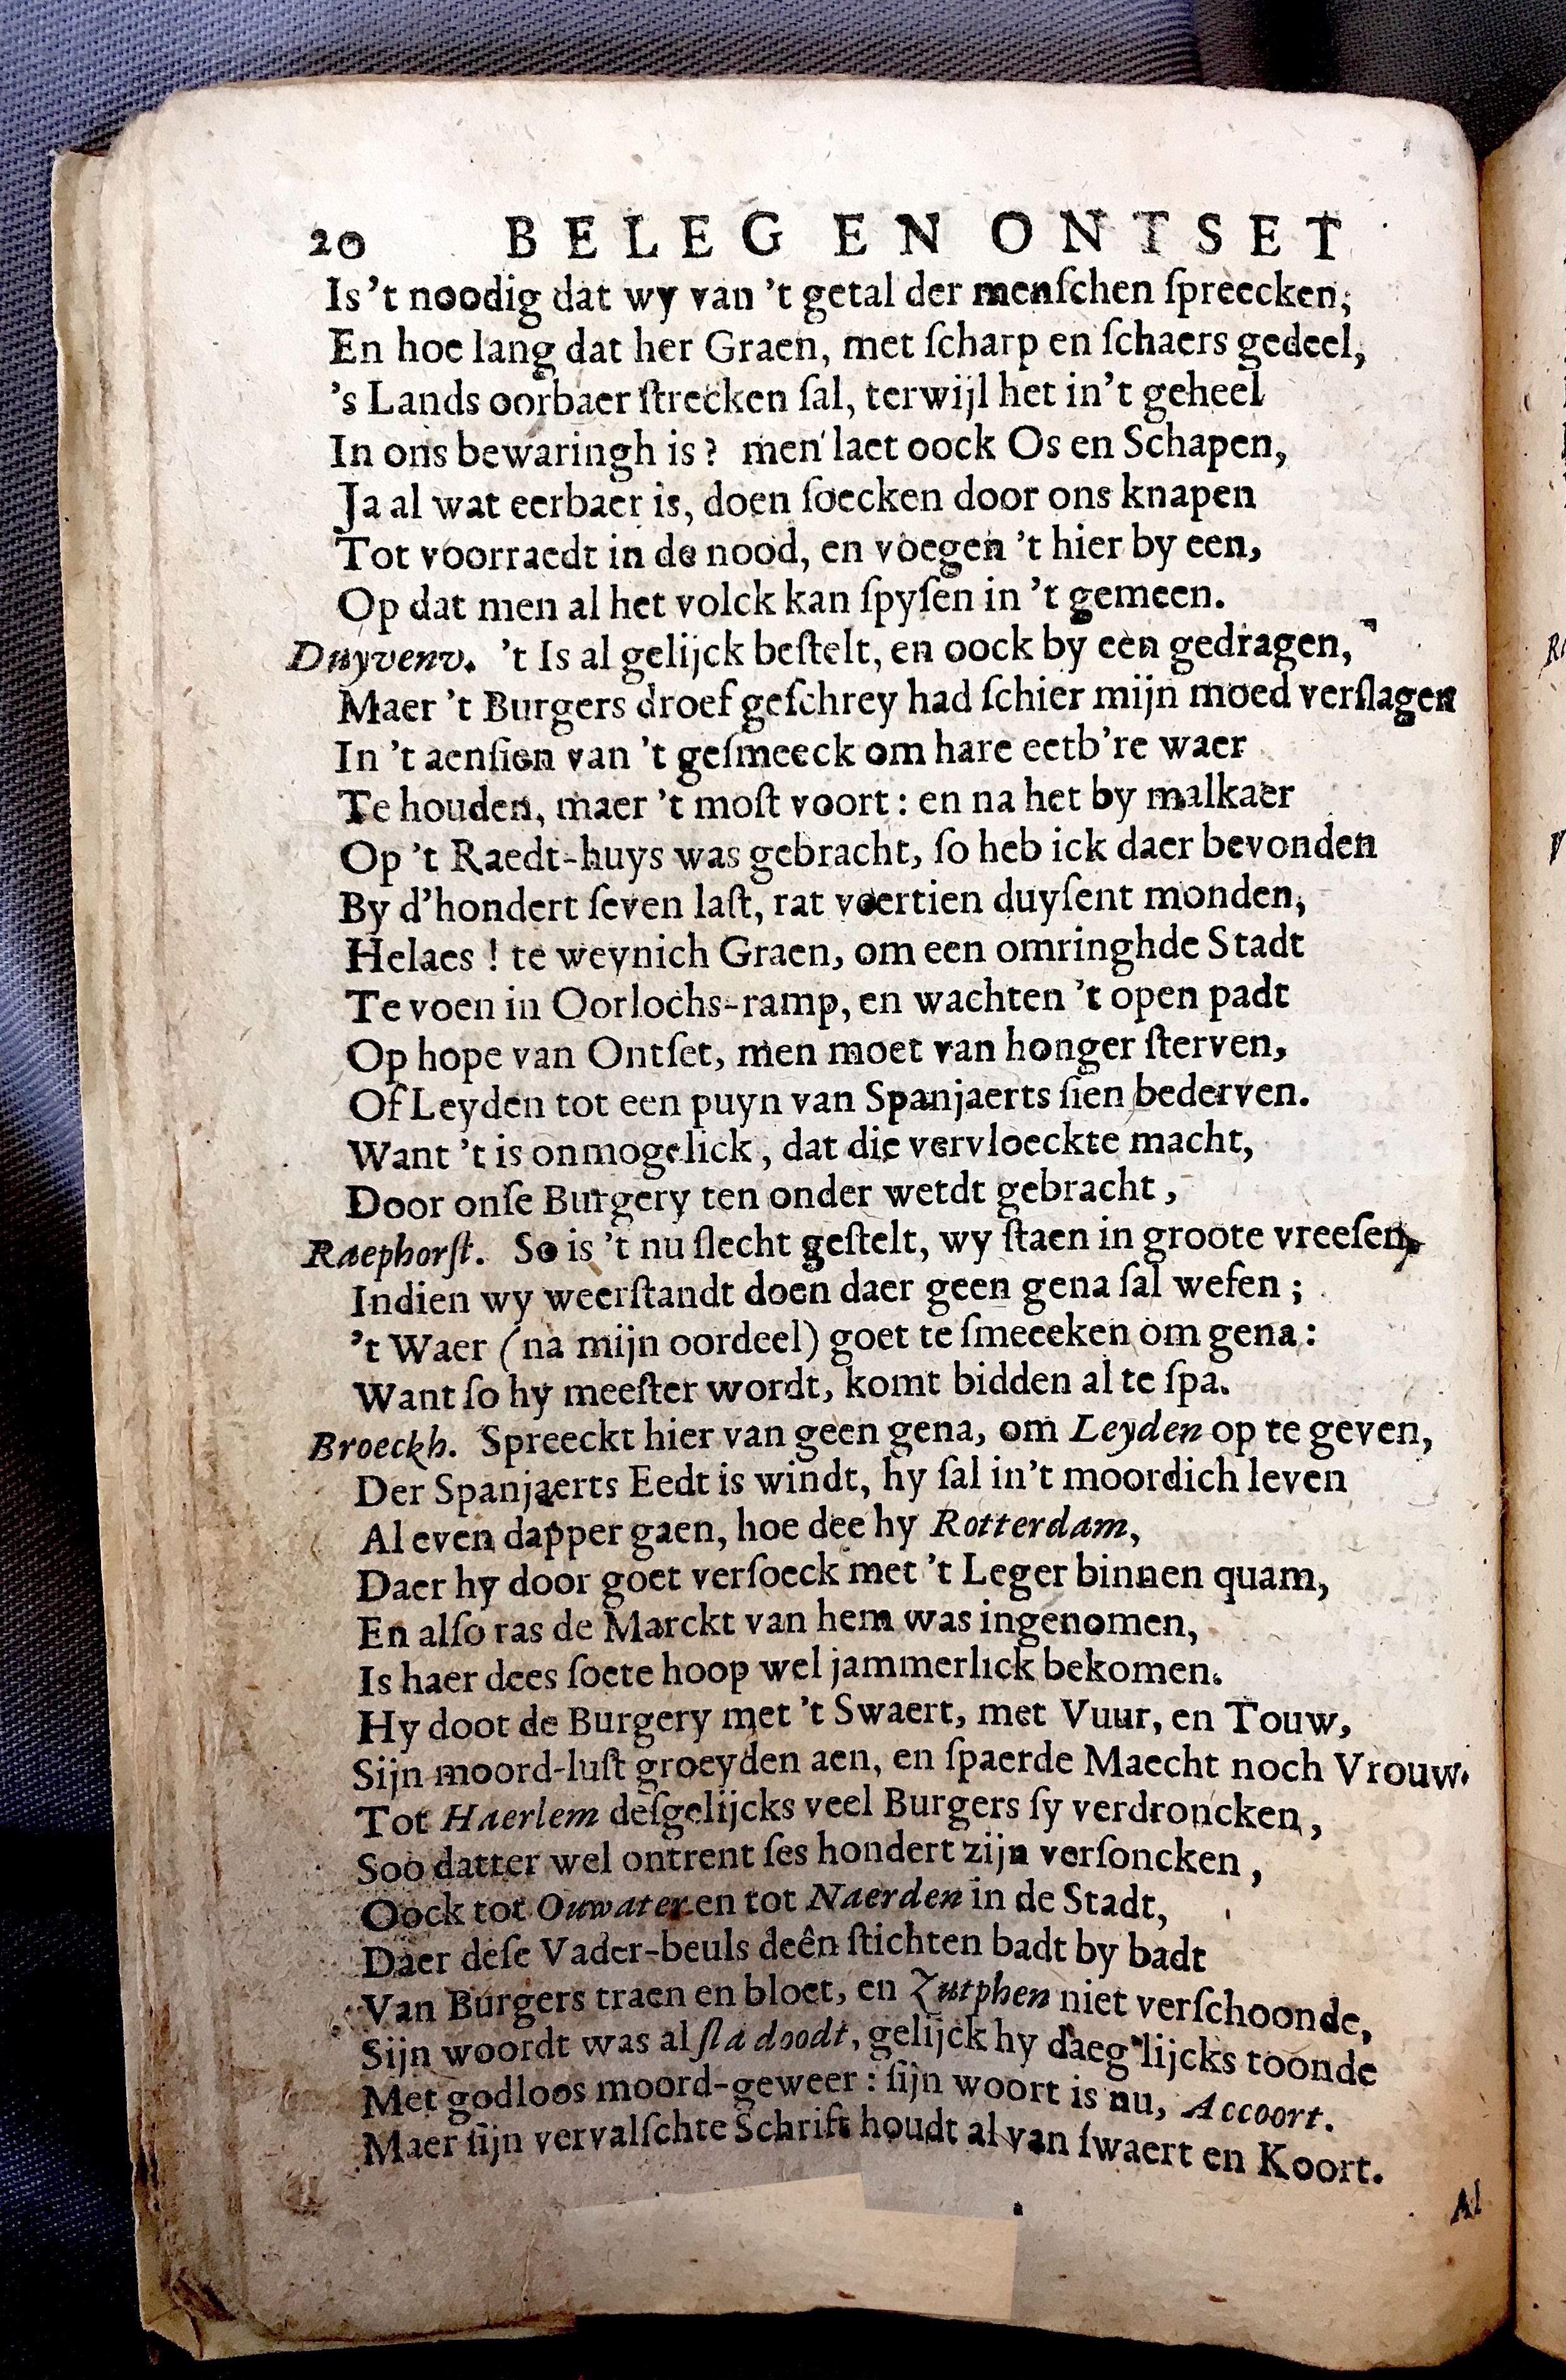 20 BELEG EN ONTSET
Is 't noodig dat wy van 't getal der menſchen ſpreecken;
En hoe lang dat her Graen, met ſcharp en ſchaers gedeel,
's Lands oorbaer ſtrecken ſal, terwijl het in't geheel
In ons bewaringh is? men laet oock Os en Schapen,
Ja al wat eerbaer is, doen ſoecken door ons knapen
Tot voorraedt in de nood, en voegen 't hier by een,
Op dat men al het volck kan ſpyſen in 't gemeen.
Duyvenv. 't Is al gelijck beſtelt, en oock by een gedragen,
Maer 't Burgers droef geſchrey had ſchier mijn moed verſlagen
In 't aenſien van 't geſmeeck om hare eetb're waer
Te houden, maer 't moſt voort: en na het by malkaer
Op 't Raedt-huys was gebracht, ſo heb ick daer bevonden
By d'hondert ſeven laſt, rat veertien duyſent monden,
Helaes! te weynich Graen, om een omringhde Stadt
Te voen in Oorlochs-ramp, en wachten 't open padt
Op hope van Ontſet, men moet van honger ſterven,
Of Leyden tot een puyn van Spanjaerts ſien bederven.
Want 't is onmogelick, dat die vervloeckte macht,
Door onſe Burgery ten onder wetdt gebracht,
Raephorſt. So is 't nu ſlecht geſtelt, wy ſtaen in groote vreeſen,
Indien wy weerſtandt doen daer geen gena ſal weſen;
't Waer (na mijn oordeel) goet te ſmeeeken om gena:
Want ſo hy meeſter wordt, komt bidden al te ſpa.
Broeckh. Spreeckt hier van geen gena, om Leyden op te geven,
Der Spanjaerts Eedt is windt, hy ſal in't moordich leven
Al even dapper gaen, hoe dee hy Rotterdam,
Daer hy door goet verſoeck met 't Leger binnen quam,
En alſo ras de Marckt van hem was ingenomen,
Is haer dees ſoete hoop wel jammerlick bekomen.
Hy doot de Burgery met 't Swaert, met Vuur, en Touw,
Sijn moord-luſt groeyden aen, en ſpaerde Maecht noch Vrouw.
Tot Haerlem deſgelijcks veel Burgers ſy verdroncken,
Soo datter wel ontrent ſes hondert zijn verſoncken,
Oock tot Ouwater en tot Naerden in de Stadt,
Daer deſe Vader-beuls deên ſtichten badt by badt
Van Burgers traen en bloet, en Zutphen niet verſchoonde,
Sijn woordt was al ſla doodt, gelijck hy daeg'lijcks toonde
Met godloos moord-geweer: ſijn woort is nu, Accoort.
Maer ſijn vervalſchte Schrift houdt al van ſwaert en Koort.
Al